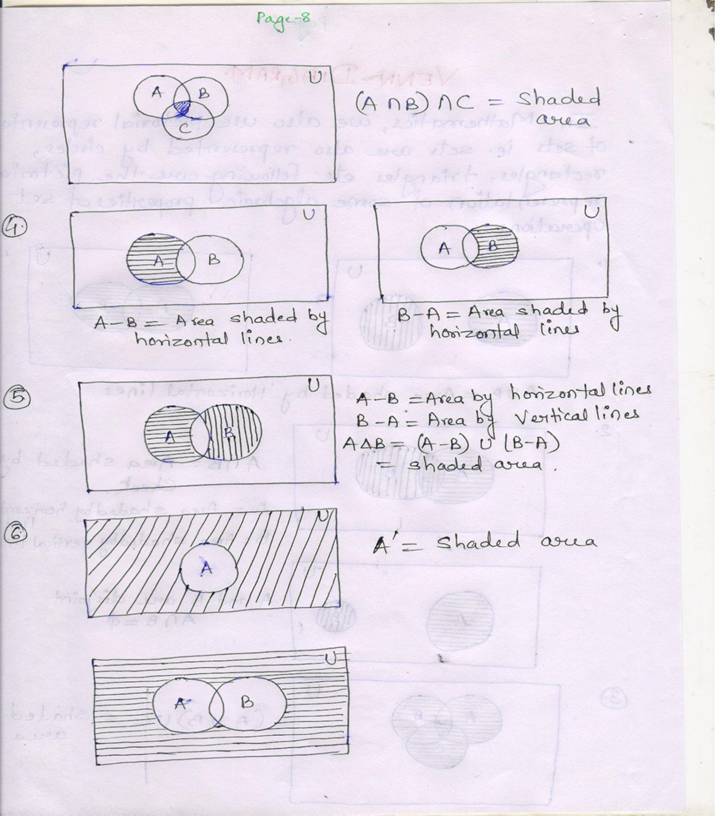 Page-8
U
A B
C
(A ∩ B) ∩ C = Shaded
area
4.
U
A B
A-B = Area shaded by
horizontal lines.
U
A B
B-A = Area shaded by
horizontal lines
5
U
A B
A-B = Area by horizontal lines
B-A = Area by Vertical lines
A∆B = (A-B) ∪ (B-A)
= shaded area.
6
U
A
A' = Shaded area
U
A B